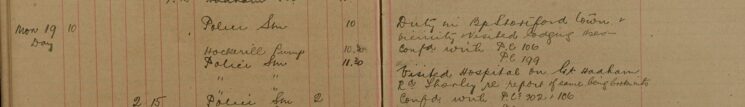 Mon 19 10 Police Stn 10 Duty in Bp Stortford town &
Day vicinity visited lodging
Hockerill Pump 10.30 Confd with P.C 106
Police Stn 11.30 PC 199
" " Visited Hospital on Gt Hadham
Rd Thorley re report of same being broken into
2 15 Police Stn 2 Confd with P.C. 202 & 106